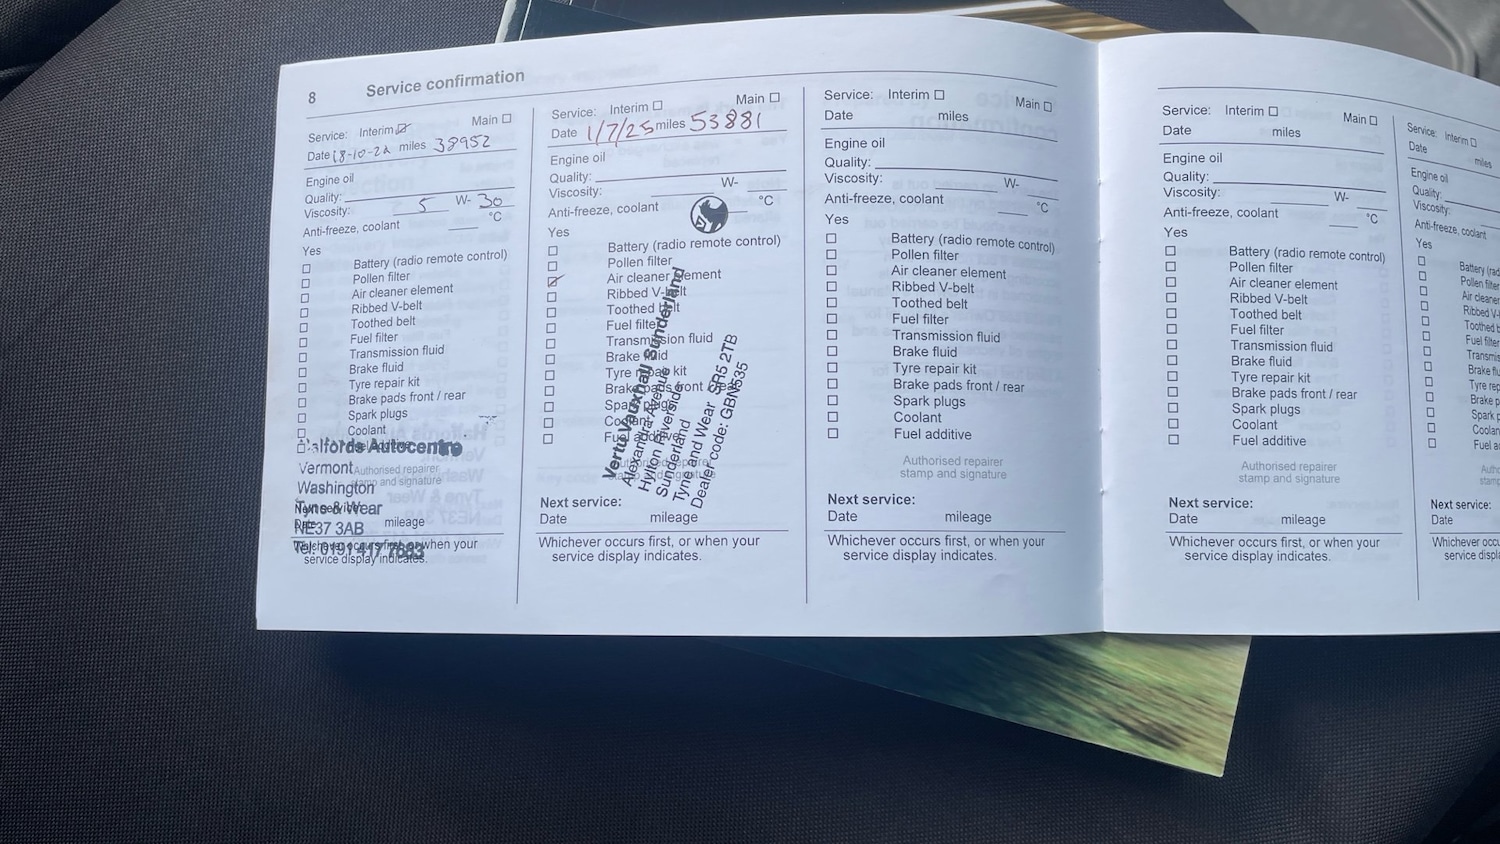 8 Service confirmation
Service: Interim Main
Date 18-10-22 miles 38952
Engine oil
Quality:
Viscosity: 5 W- 30
Anti-freeze, coolant °C
Yes
Battery (radio remote control)
Pollen filter
Air cleaner element
Ribbed V-belt
Toothed belt
Fuel filter
Transmission fluid
Brake fluid
Tyre repair kit
Brake pads front / rear
Spark plugs
Coolant
Halfords Autocentre
Vermont
Authorised repairer
stamp and signature
Washington
Tyne & Wear
Next service:
Date mileage
NE37 3AB
Tel: 0191 417 7683
Whichever occurs first, or when your
service display indicates.
Service: Interim Main
Date 1/7/25 miles 53881
Engine oil
Quality:
Viscosity: W-
Anti-freeze, coolant °C
Yes
Battery (radio remote control)
Pollen filter
Air cleaner element
Ribbed V-belt
Toothed belt
Fuel filter
Transmission fluid
Brake fluid
Tyre repair kit
Brake pads front / rear
Spark plugs
Coolant
Fuel additive
Vertu Vauxhall Sunderland
Alexandra Avenue
Hylton Riverside
Sunderland
Tyne and Wear SR5 2TB
Dealer code: GBN535
Authorised repairer
stamp and signature
Next service:
Date mileage
Whichever occurs first, or when your
service display indicates.
Service: Interim Main
Date miles
Engine oil
Quality:
Viscosity: W-
Anti-freeze, coolant °C
Yes
Battery (radio remote control)
Pollen filter
Air cleaner element
Ribbed V-belt
Toothed belt
Fuel filter
Transmission fluid
Brake fluid
Tyre repair kit
Brake pads front / rear
Spark plugs
Coolant
Fuel additive
Authorised repairer
stamp and signature
Next service:
Date mileage
Whichever occurs first, or when your
service display indicates.
Service: Interim Main
Date miles
Engine oil
Quality:
Viscosity: W-
Anti-freeze, coolant °C
Yes
Battery (radio remote control)
Pollen filter
Air cleaner element
Ribbed V-belt
Toothed belt
Fuel filter
Transmission fluid
Brake fluid
Tyre repair kit
Brake pads front / rear
Spark plugs
Coolant
Fuel additive
Authorised repairer
stamp and signature
Next service:
Date mileage
Whichever occurs first, or when your
service display indicates.
Service: Interim
Date miles
Engine oil
Quality:
Viscosity:
Anti-freeze, coolant
Yes
Battery
Pollen filter
Air
Ribbed
Toothed
Fuel filter
Brake
Tyre
Brake
Spark
Fuel
Next service:
Date
Whichever
service